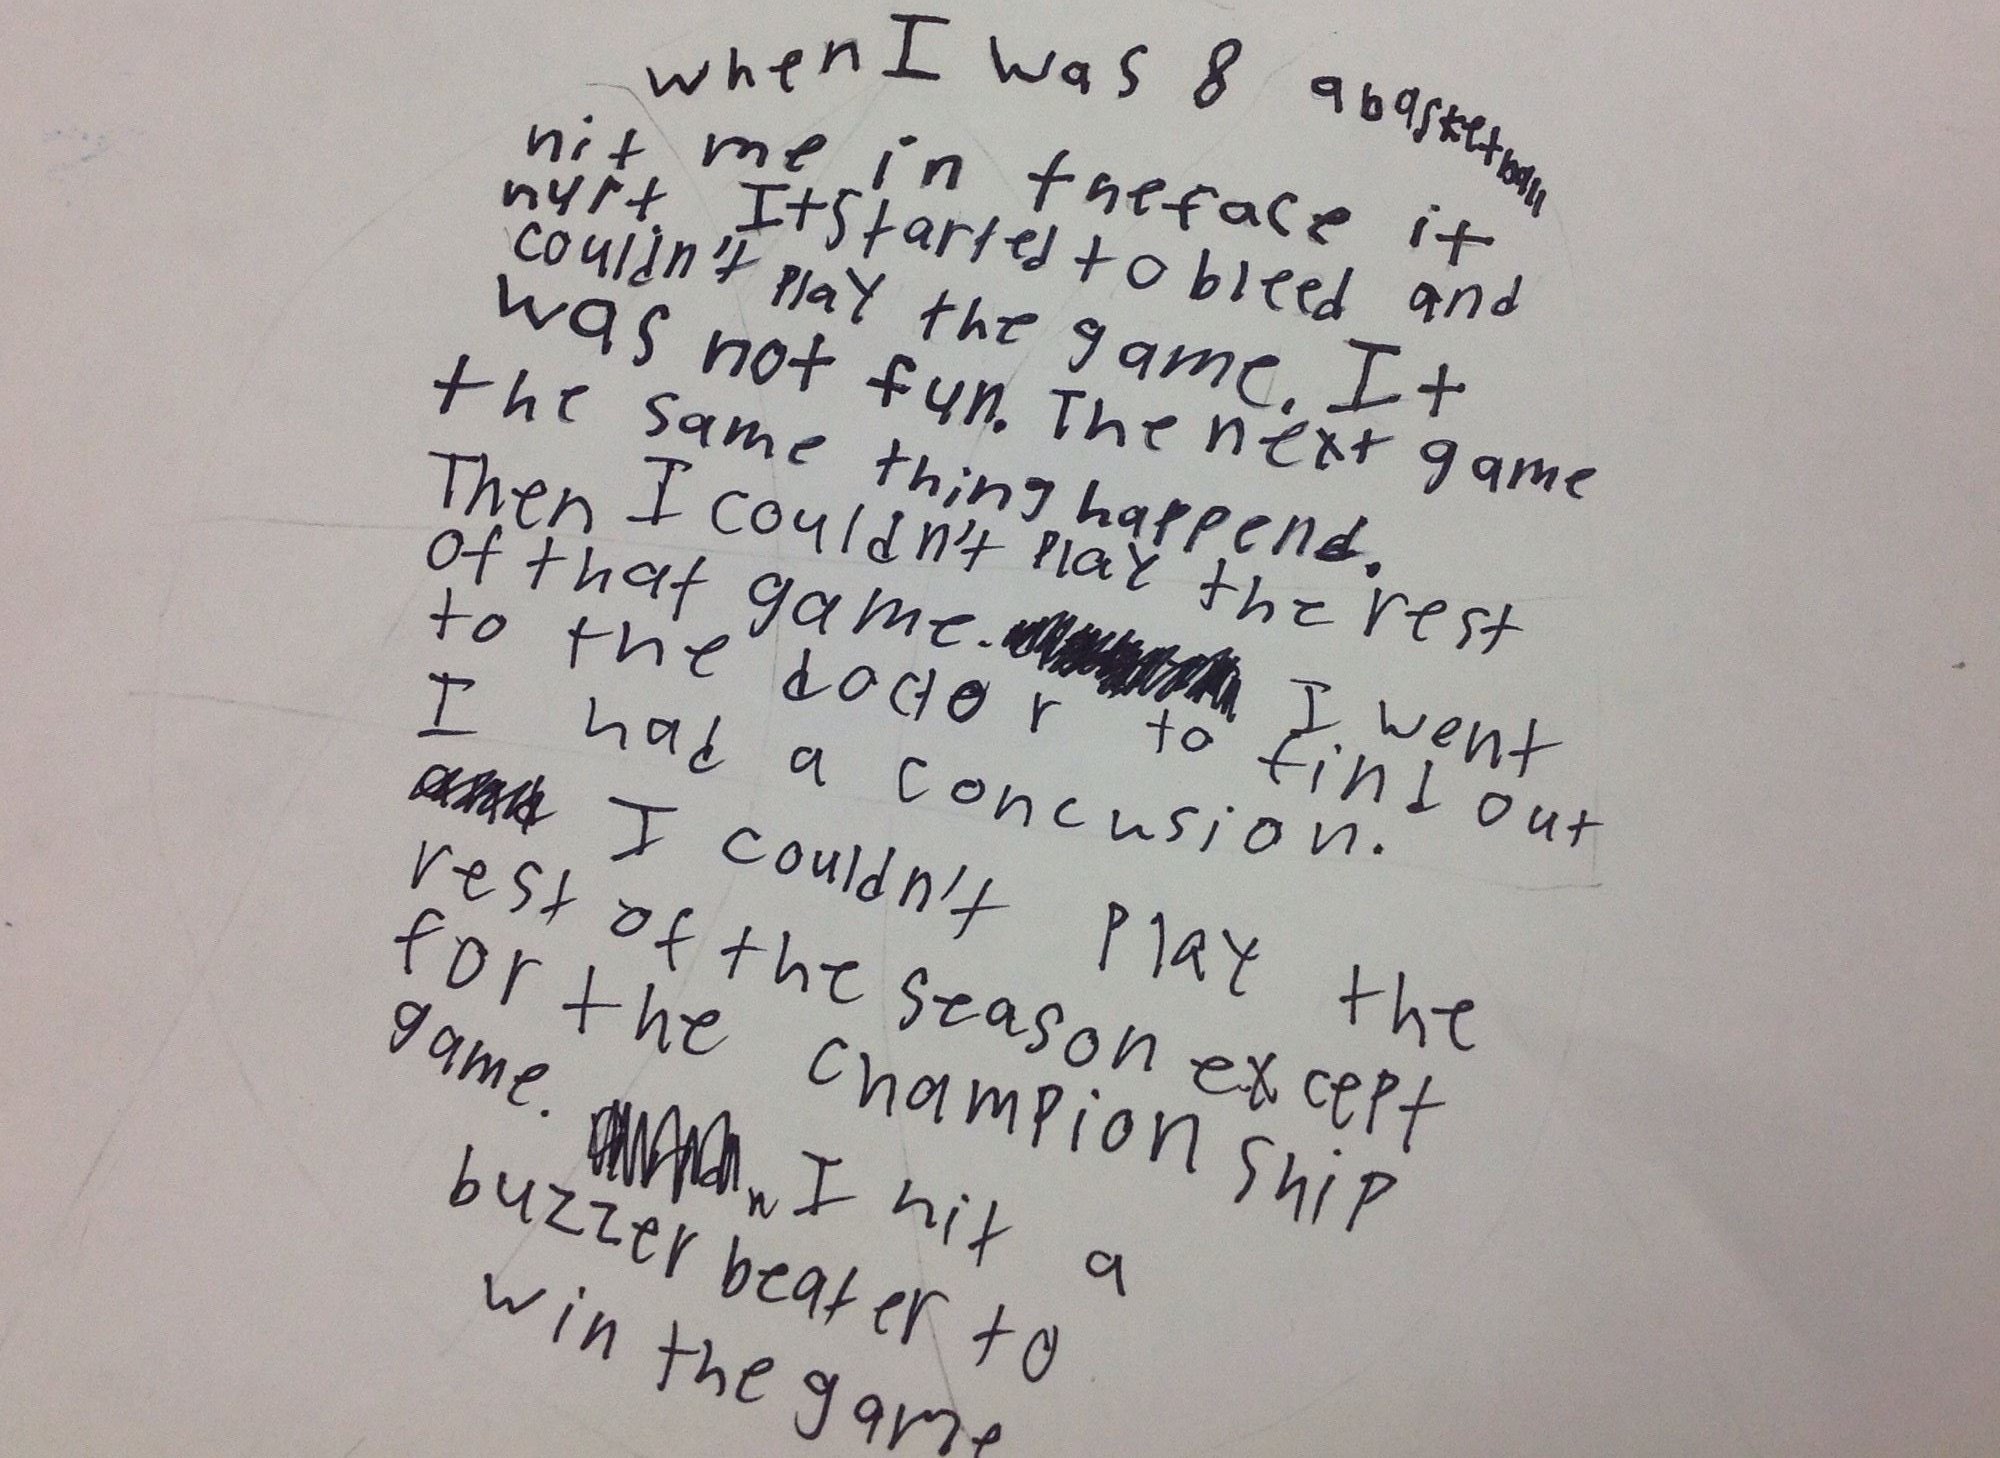 when I was 8 a basketball
hit me in the face it
hurt. It started to bleed and
couldn't play the game. It
was not fun. The next game
the same thing happend.
Then I couldn't play the rest
of that game. I went
to the doctor to find out
I had a concusion.
I couldn't play the
rest of the season except
for the champion ship
game. I hit a
buzzer beater to
win the game